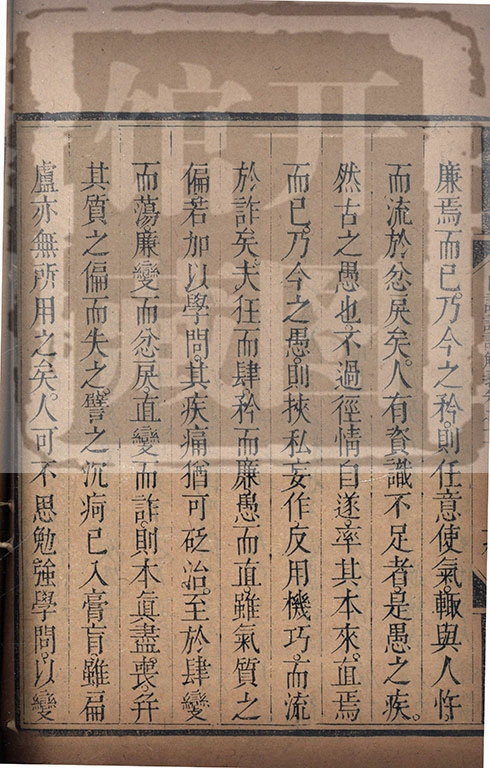 廉焉而已乃今之矜則任意使氣輙與人忤
而流於忿戾矣人有資識不足者是愚之疾
然古之愚也不過徑情自遂率其本來直焉
而已乃今之愚則挾私妄作反用機巧而流
於詐矣夫狂而肆矜而廉愚而直雖氣質之
偏若加以學問其疾痛猶可砭治至於肆變
而蕩廉變而忿戾直變而詐則本眞盡喪并
其質之偏而失之譬之沉疴已入膏肓雖扁
盧亦無所用之矣人可不思勉強學問以變